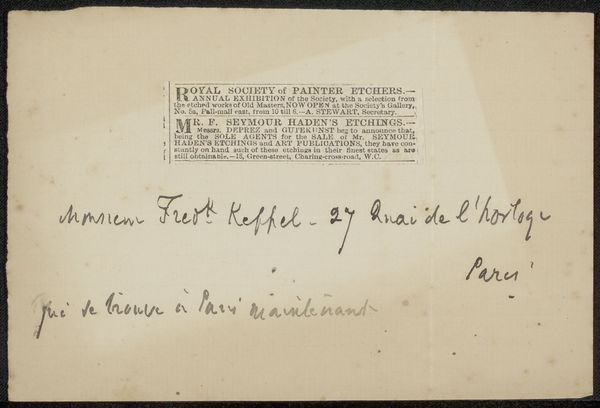 ROYAL SOCIETY of PAINTER ETCHERS.—
ANNUAL EXHIBITION of the Society, with a selection from
the etched works of Old Masters, NOW OPEN at the Society's Gallery,
No. 5a, Pall-mall east, from 10 till 6.—A. STEWART, Secretary.
MR. F. SEYMOUR HADEN'S ETCHINGS.—
Messrs. DEPREZ and GUTEKUNST beg to announce that,
being the SOLE AGENTS for the SALE of Mr. SEYMOUR
HADEN'S ETCHINGS and ART PUBLICATIONS, they have con-
stantly on hand such of these etchings in their finest states as are
still obtainable.—18, Green-street, Charing-cross-road, W.C.
Monsieur Fredk Keppel - 27 Quai de l'horloge
Paris
qui se trouve à Paris maintenant